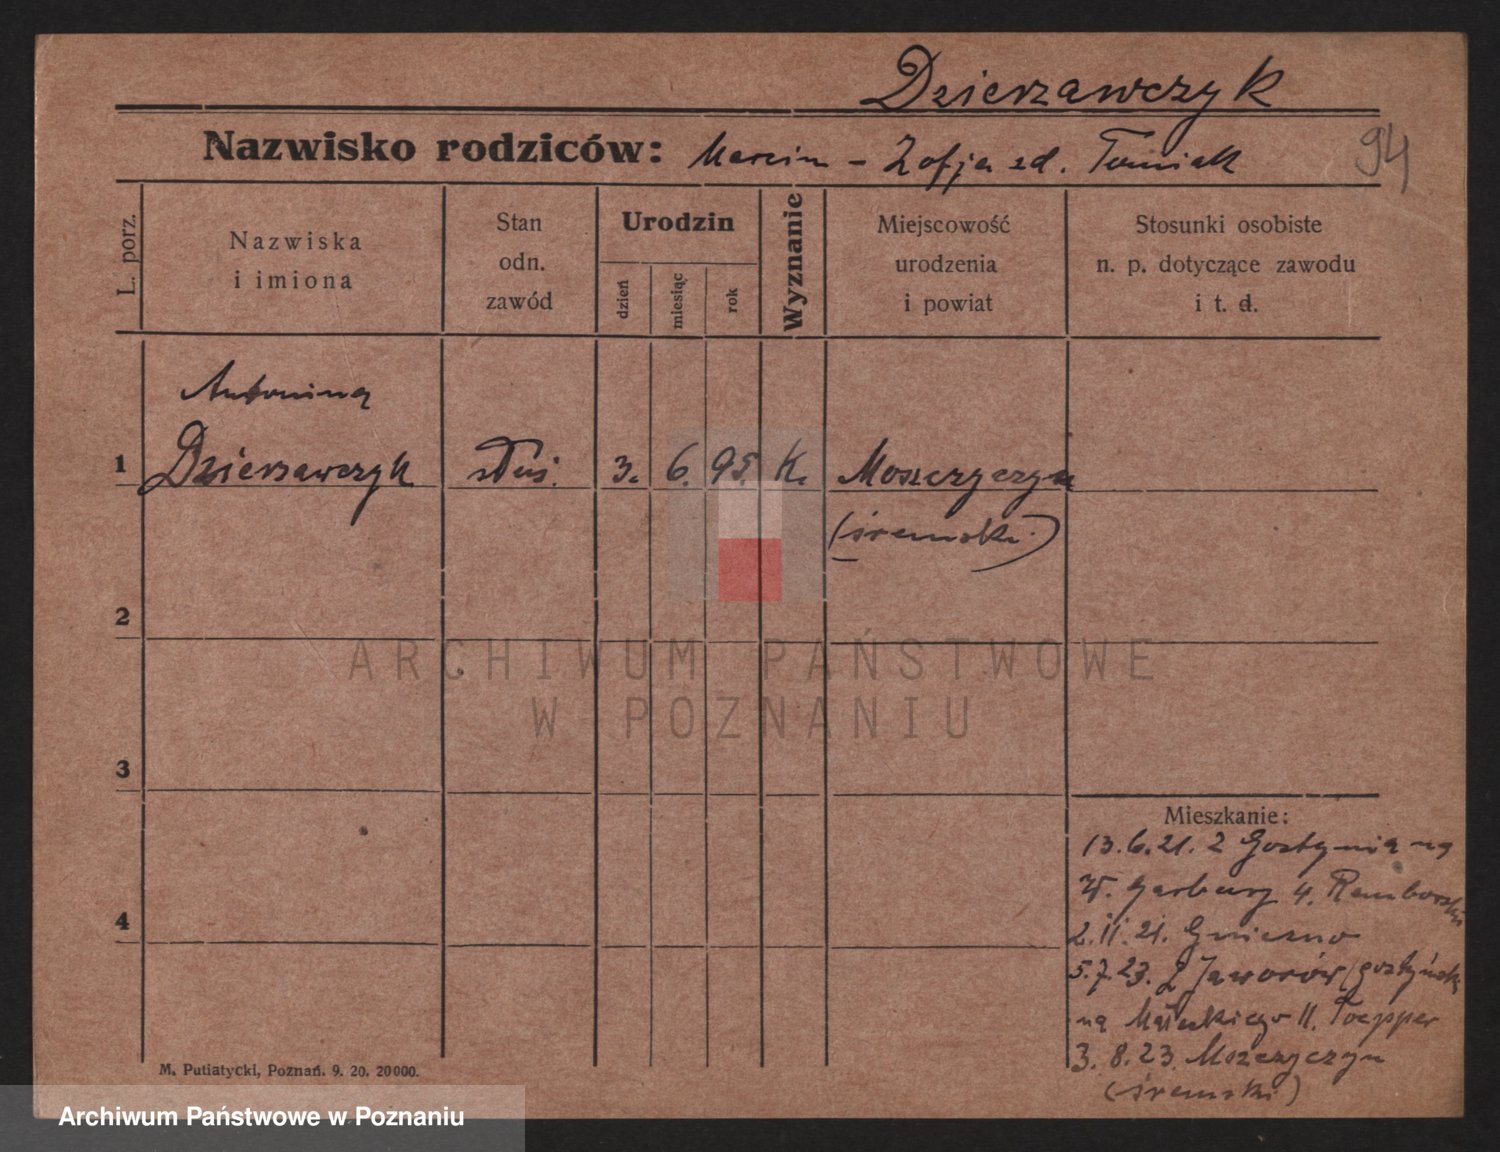 Dzierzawczyk
Nazwisko rodziców: Marcin - Zofja zd. Tomiak
94
L. porz.
Nazwiska
i imiona
Stan
odn.
zawód
Urodzin
dzień
miesiąc
rok
Wyznanie
Miejscowość
urodzenia
i powiat
Stosunki osobiste
n. p. dotyczące zawodu
i t. d.
Antonina
1 Dzierzawczyk służ. 3. 6. 95. K. Moszczyczyn
(śremski)
2
3
4
Mieszkanie:
13.6.21. z Gostynia na
W. Garbary 4.
2.11.21. Gniezno
5.7.23. z Jaworów (gostyńsk
na Małeckiego 11. Toepper
3.8.23. Mszczyczyn
(śremski)
M. Putiatycki, Poznań. 9. 20. 20000.
ARCHIWUM PAŃSTWOWE
W POZNANIU
Archiwum Państwowe w Poznaniu